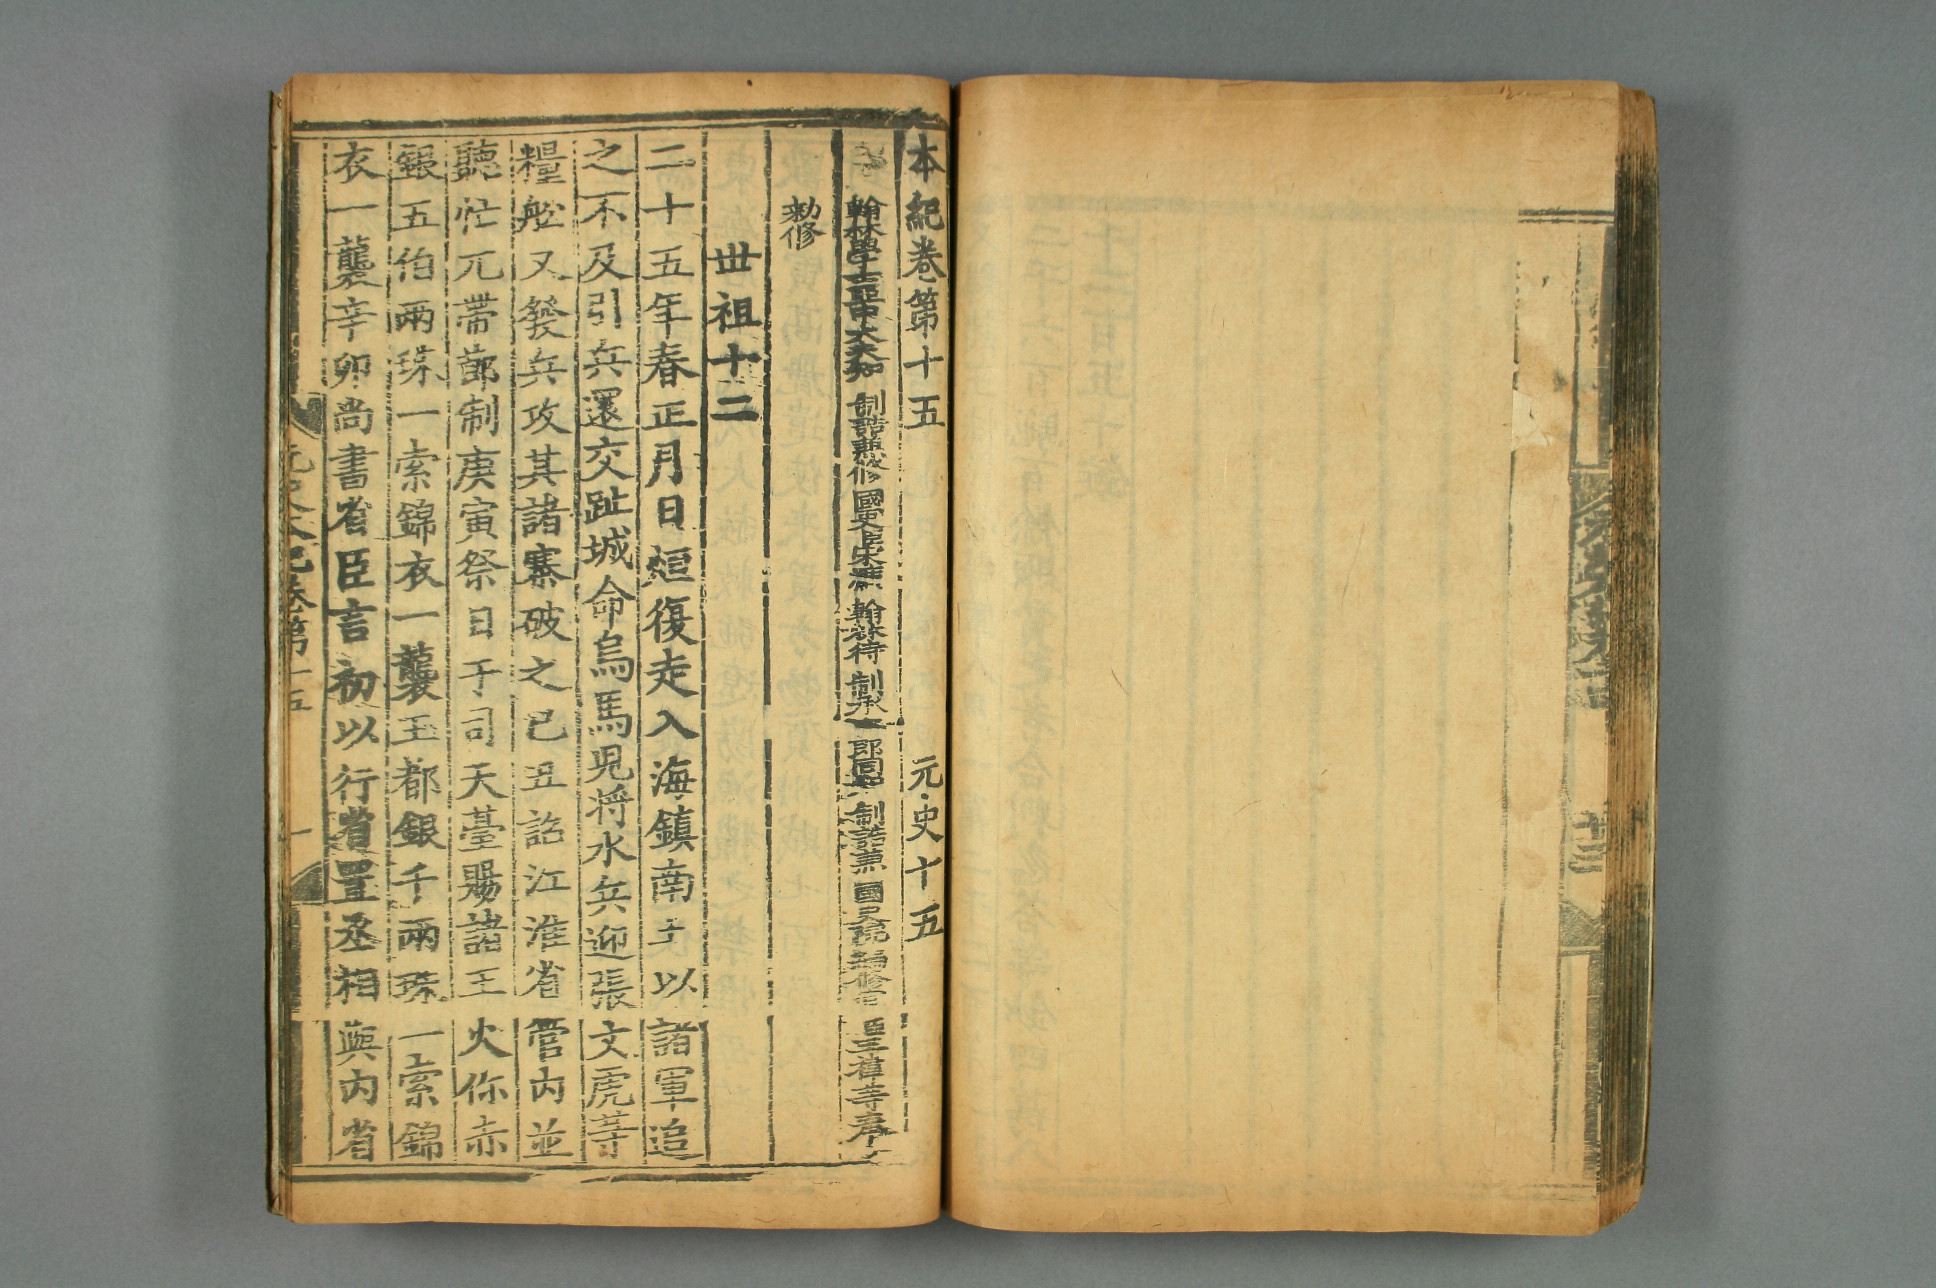 本紀卷第十五 元史十五
翰林學士亞中大夫知 制誥兼修 國史臣宋濂 翰林待 制承 郎同知 制誥兼 國史院編修官 臣王禕等奉
勅修
世祖十二
二十五年春正月日烜復走入海鎮南王以諸軍追
之不及引兵還交趾城命烏馬兒將水兵迎張文虎等
糧船又發兵攻其諸寨破之己丑詔江淮省管內並
聽忙兀帶節制庚寅祭日于司天臺賜諸王火你赤
銀五伯兩珠一索錦衣一襲玉都銀千兩珠一索錦
衣一襲辛卯尚書省臣言初以行省置丞相與內省
元史本紀卷第十五 一